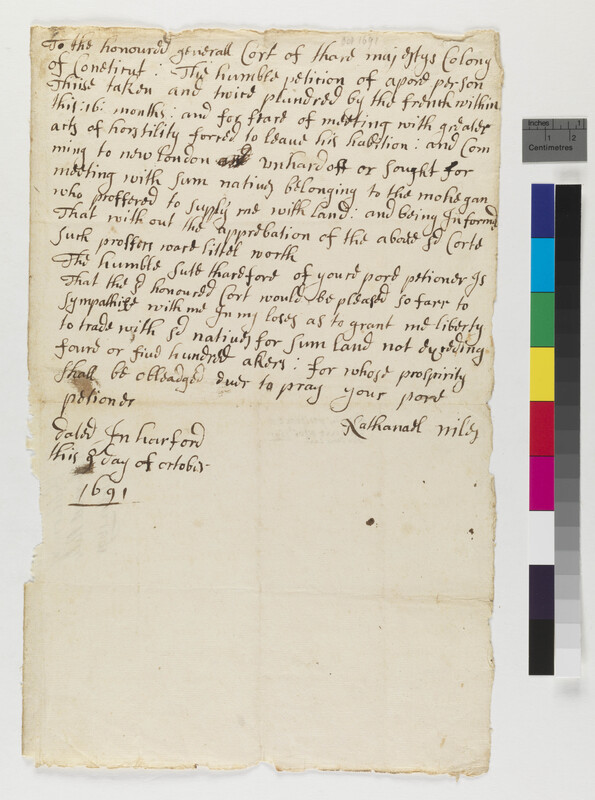 To the honoured generall Cort of thare majestys Colony
of Coneticut: The humble peticion of a pore person
Thrise taken and twice plundred by the french within
this :16: months: and for feare of meeting with greater
acts of horstility forced to leave his habetion: and Com
ming to new london unhard off or sought for
meeting with sum natives belonging to the mohegan
who proffered to supply me with land: and being Informd
That with out the approbation of the above sd Corte
such proffers ware littel worth
The humble sute thareford of youre pore petioner Is
That the sd honoured Cort would be pleased so farr to
sympathise with me In my loses as to grant me liberty
to trade with sd natives for sum land not exceding
foure or five hundred akers: for whose prospirity
shall be obleadged ever to pray your pore
petioner
Nathanael niles
dated In harford
this 8 day of october
1691
Oct 1691
Inches 1 2
Centimetres